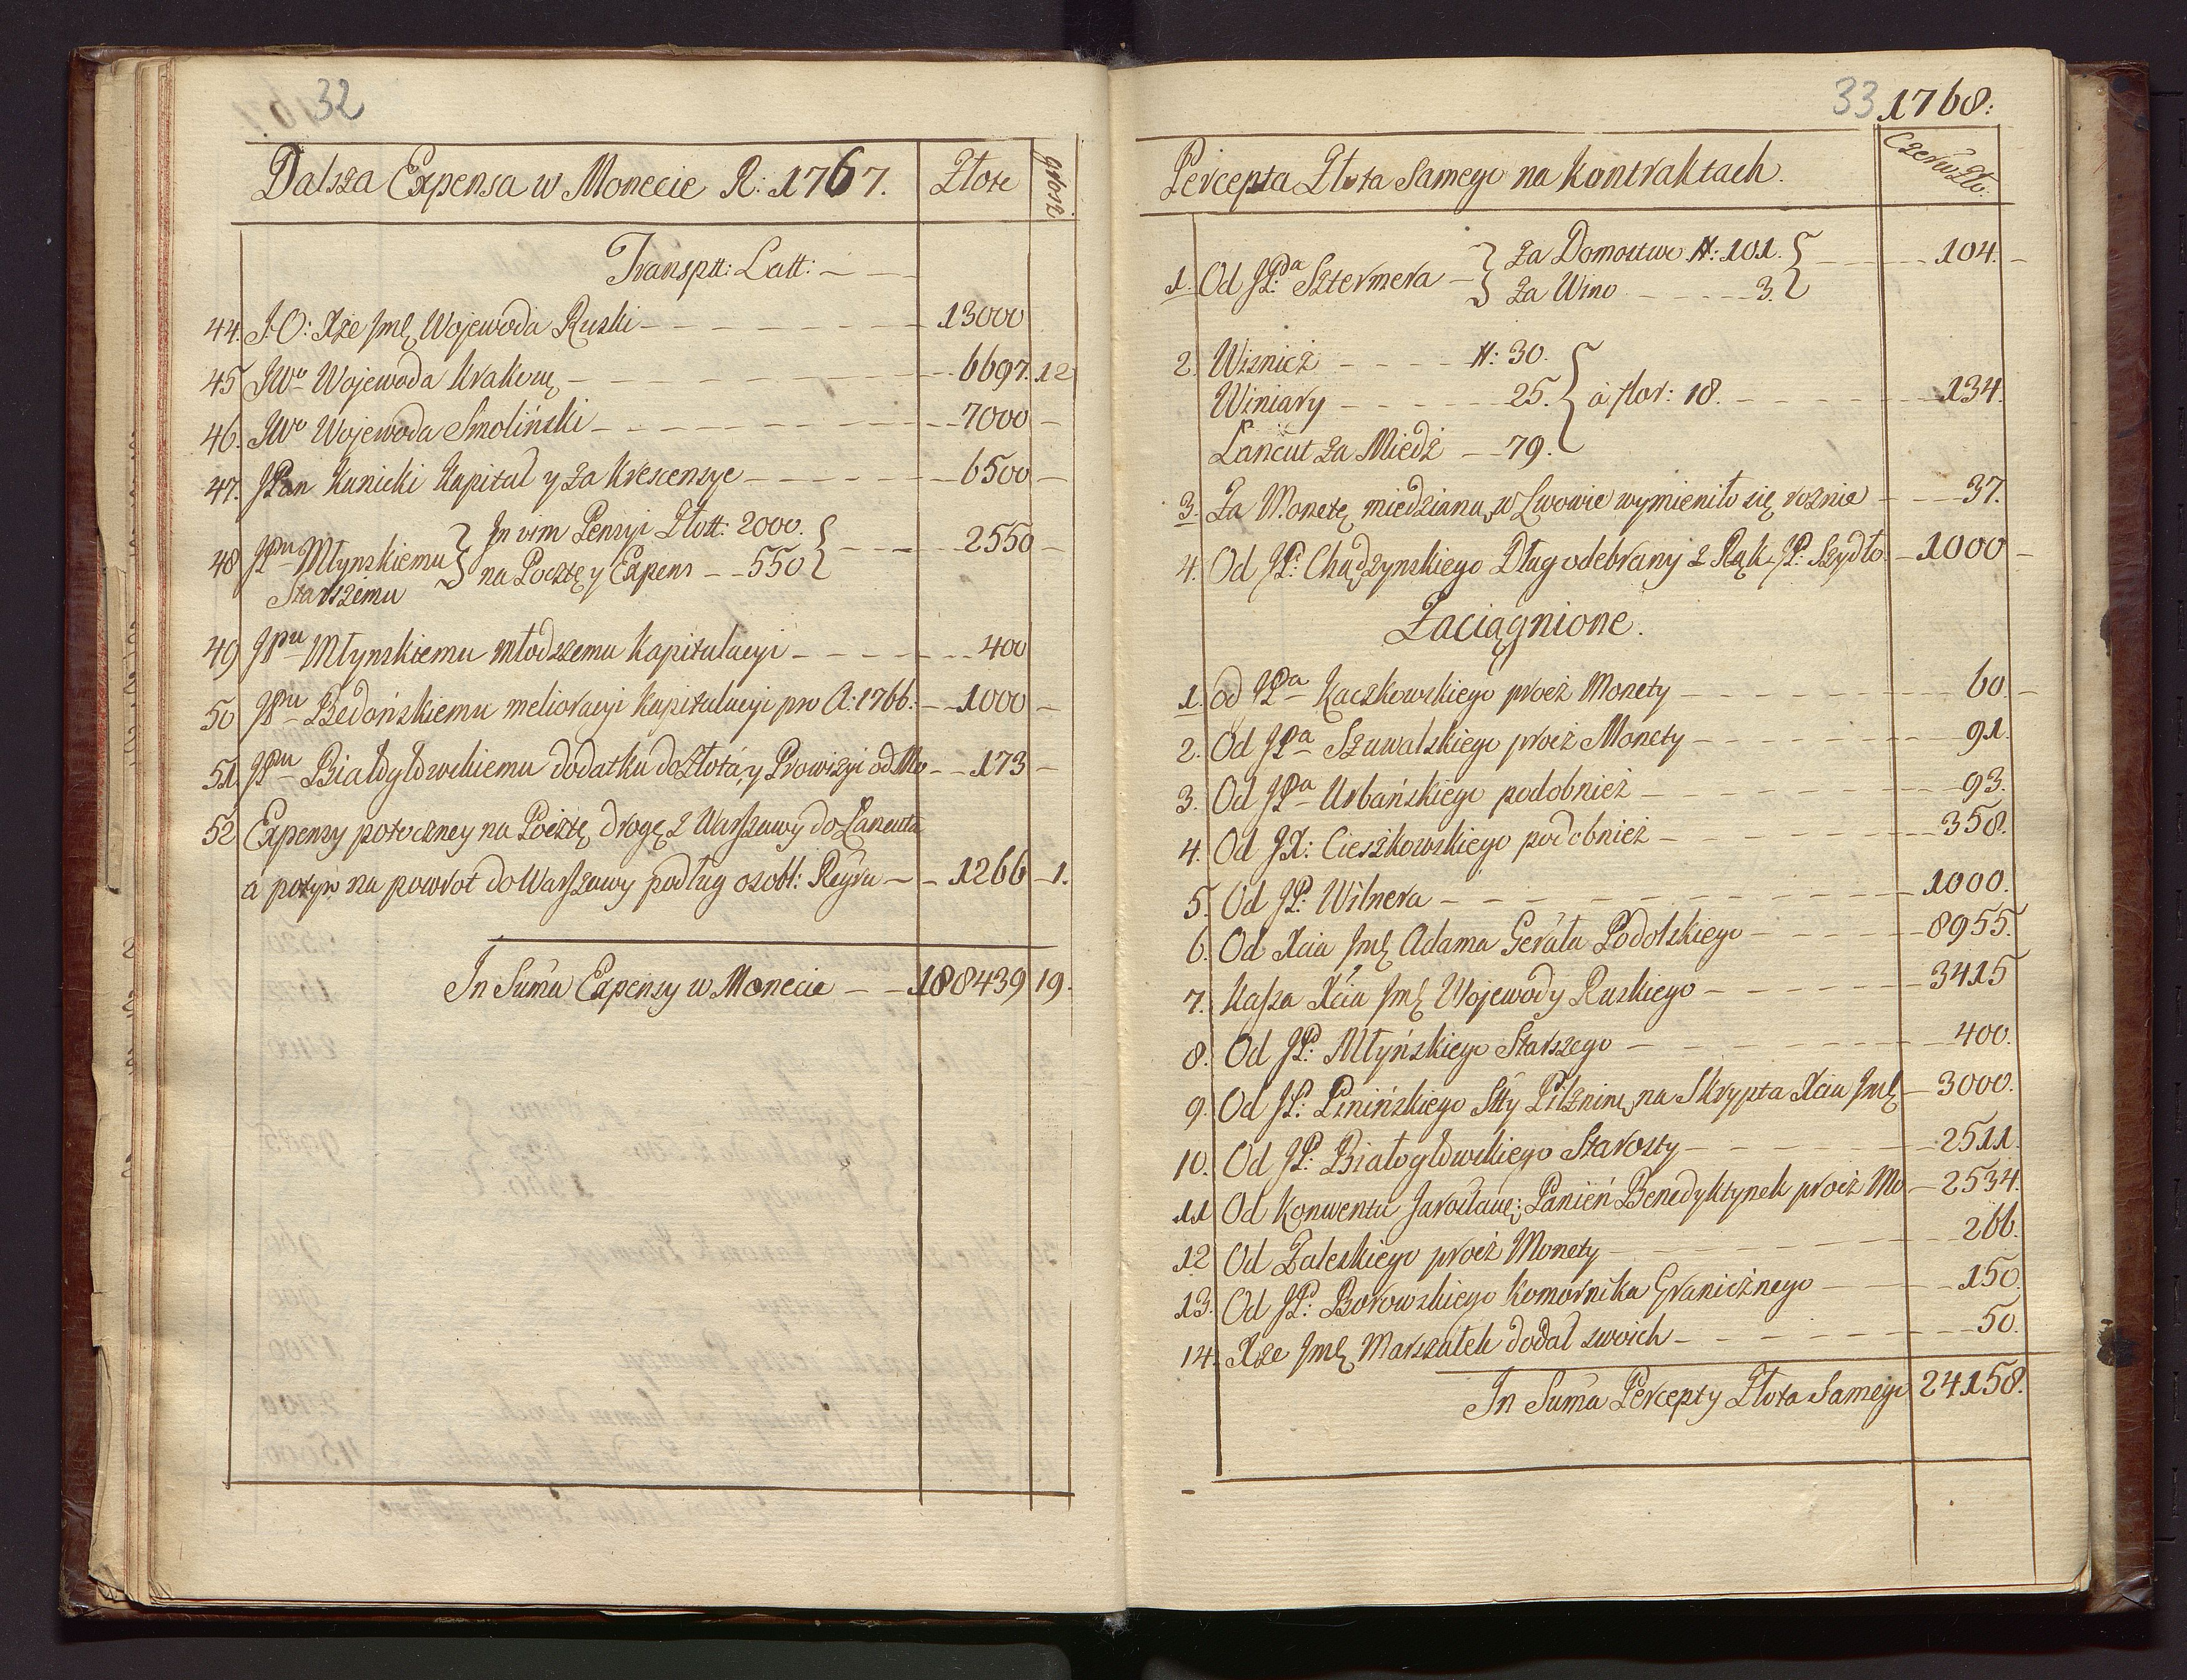 32
Dalsza Expensa w Monecie R: 1767. Złote grosz
Transptt: Latt: —
44. J:O: Xże Jmć Wojewoda Ruski 13000
45 JWo Wojewoda Krakow 6697. 12
46. JWo Wojewoda Smoliński 7000 —
47. JPan Kunicki Kapitał y za Krescensye 6500 —
48 JPnu Młynskiemu Starszemu } In vim Pensyi Złott: 2000.
na Pocztę y Expens 550 } 2550 —
49 JPnu Młynskiemu młodszemu Kapitulacyi 400
50 JPnu Bedońskiemu melioracyi Kapitulacyi pro A: 1766. 1000 —
51. JPnu Białogłowskiemu dodatku do Złota, y Prowizyi od Mo 173 —
52 Expensy potoczney na Pocztę, drogę z Warszawy do Łancuta
a potym na powrot do Warszawy podług osobl: Reyru 1266 1.
In Suma Expensy w Monecie 188439 19.
33 1768:
Percepta Złota Samego na Kontraktach. Czerw Zło:
1. Od JPda Sztermera { Za Domostwo #: 101. } 104.
Za Wino 3.
2. Wisnicz #: 30.
Winiary 25. } à flor: 18. 134.
Lancut za Miedź 79.
3. Za Monetę miedzianą w Lwowie wymieniło się roznie 37.
4. Od JP: Chądzynskiego Dług odebrany z Rąk JP: Szydło. 1000 —
Zaciągnione.
1. od JPa Kaczkowskiego procz Monety 60.
2. Od JPa Szuwalskiego procz Monety 91.
3. Od JPa Urbańskiego podobnież 93.
4. Od JX: Cieszkowskiego podobnież 358.
5. Od JP: Wilnera 1000.
6. Od Xcia Jmć Adama Gerała Podolskiego 8955.
7. Kassa Xcia Jmć Wojewody Ruskiego 3415
8. Od JP: Młyńskiego Starszego 400.
9. Od JP: Pinińskiego Stty Pilznin, na Skrypta Xcia Jmć 3000.
10. Od JP: Białogłowskiego Starosty 2511.
11 Od Konwentu Jarosławs: Panień Benedyktynek procz Mo 2534.
12 Od Zaleskiego procz Monety 266.
13. Od JP: Borowskiego Komornika Granicznego 150.
14. Xże Jmć Marszałek dodał swoich 50.
In Suma Percepty Złota Samego 24158.